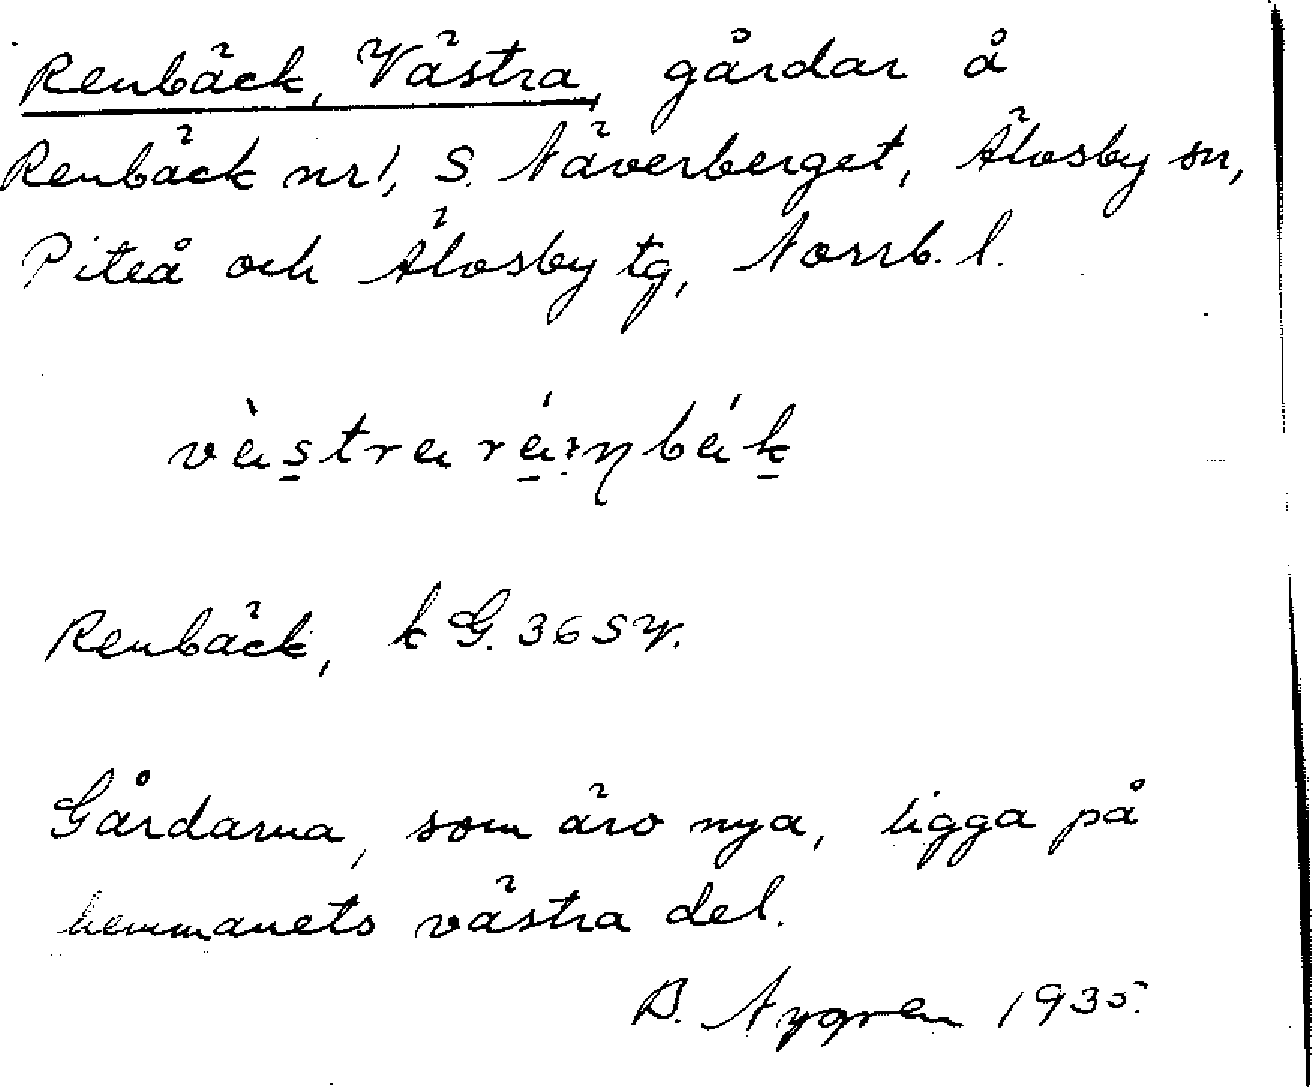 Renbäck, Västra, gårdar å
Renbäck nr 1, S. Näverberget, Älvsby sn,
Piteå och Älvsby tg, Norrb. l.
Renbäck, k G. 36 S
Gårdarna, som äro nya, ligga på
hemmanets västra del.
B. Nygren 1935.